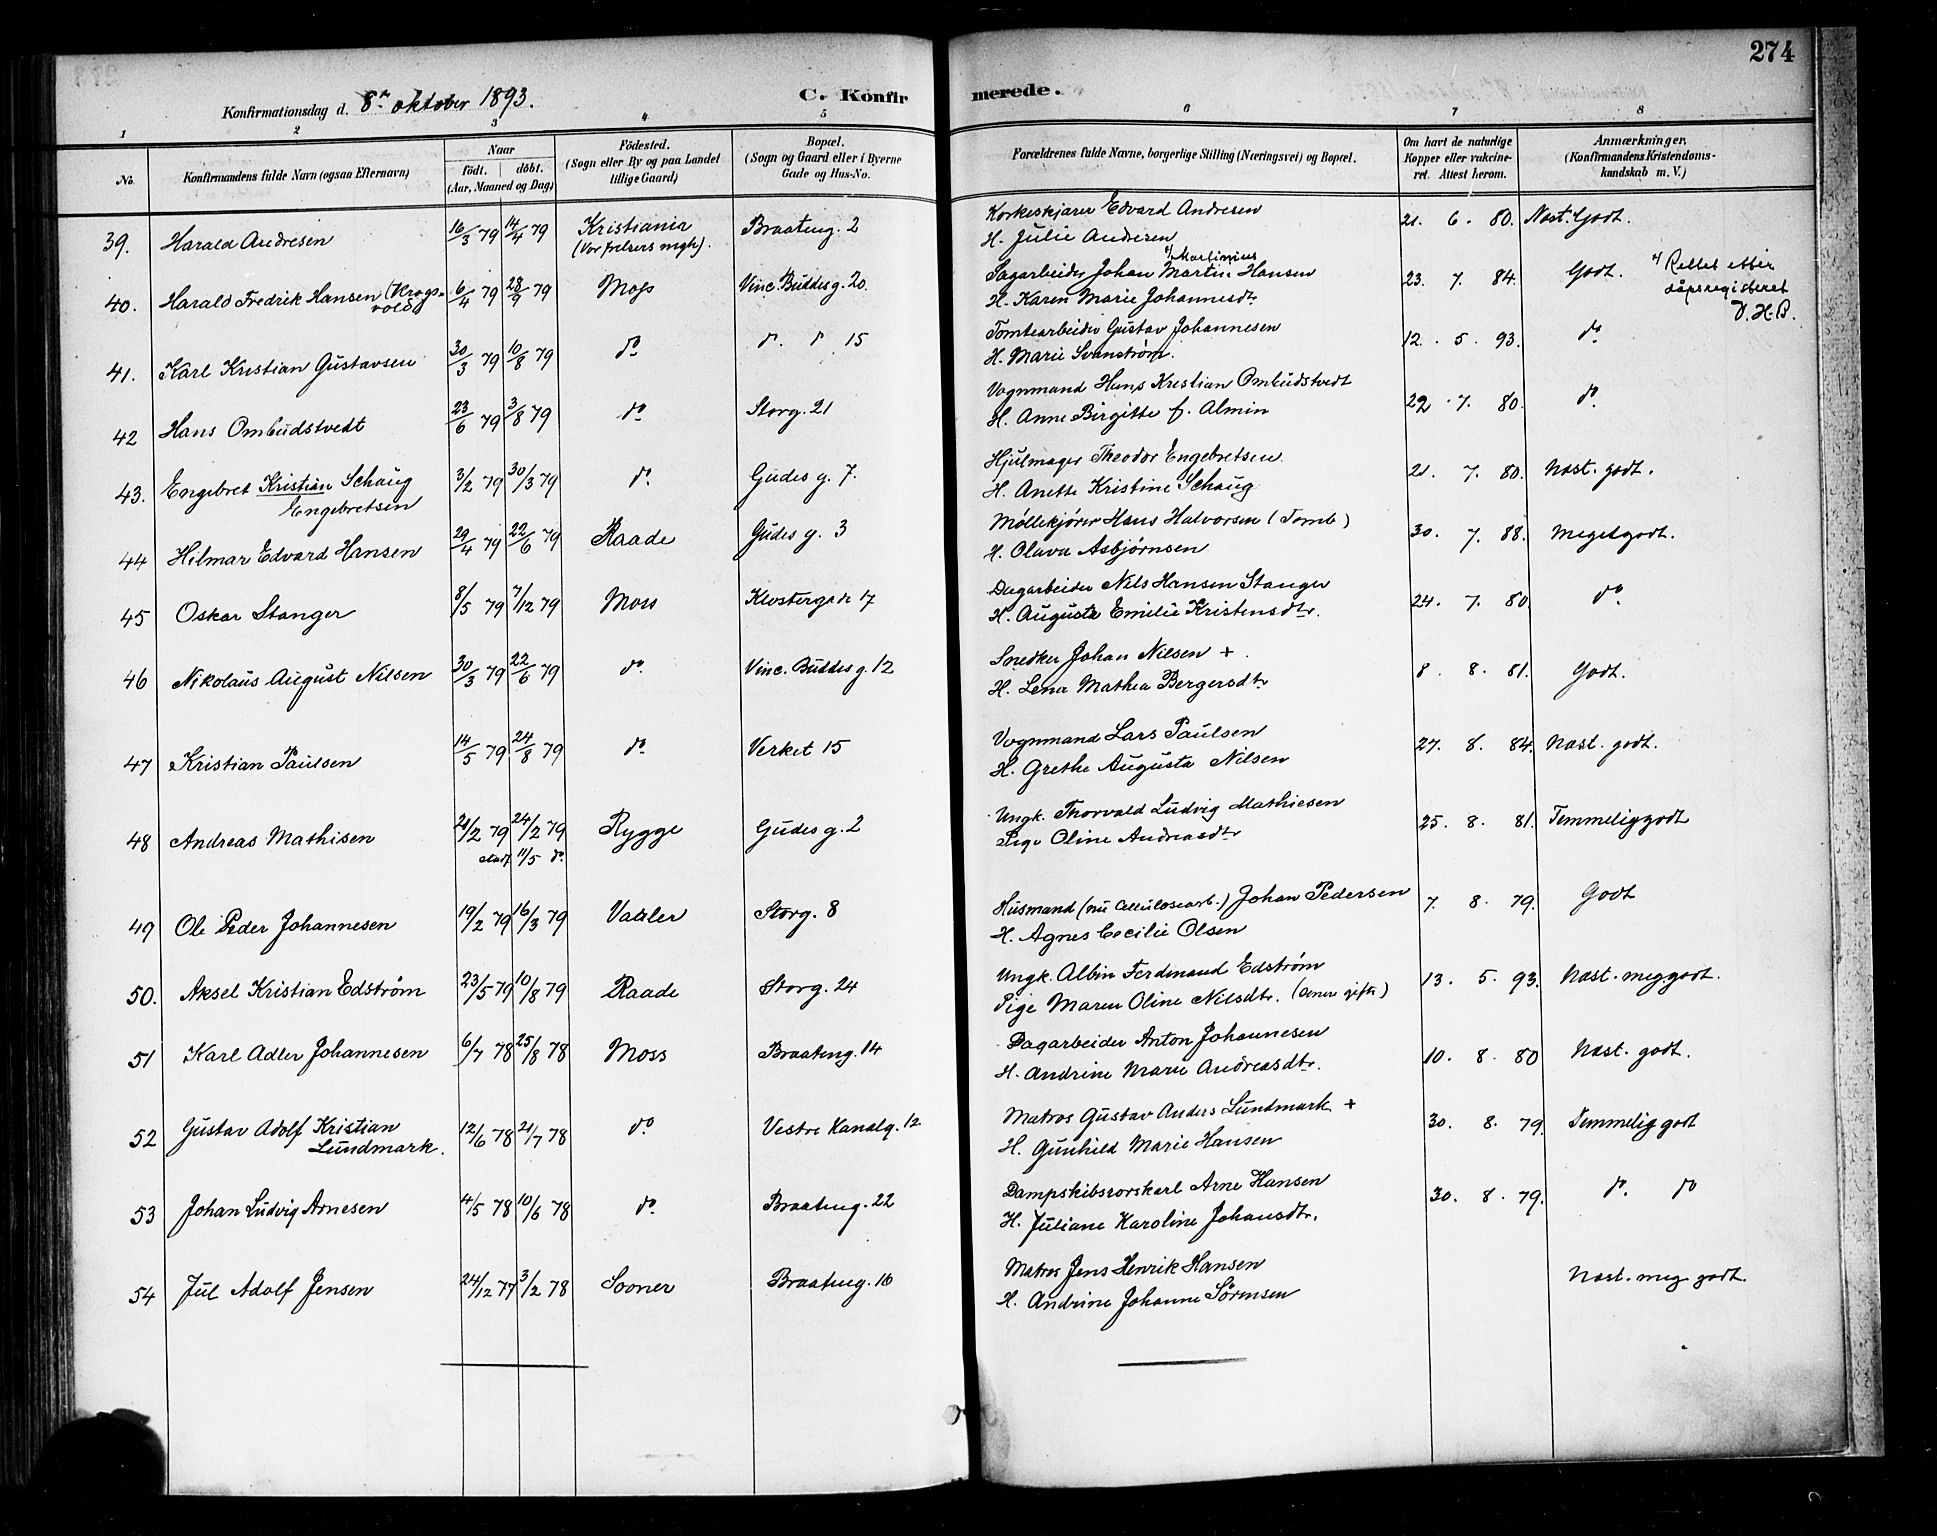 274
Konfirmationsdag d. 8de oktober 1893.
C. Konfir merede.
1 2 3 4 5 6 7 8
No. Konfirmandens fulde Navn (ogsaa Efternavn) Naar født. døbt. (Aar, Maaned og Dag) Fødested. (Sogn eller By og paa Landet tillige Gaard) Bopæl. (Sogn og Gaard eller i Byerne Gade og Hus-No. Forældrenes fulde Navne, borgerlige Stilling (Næringsvei) og Bopæl. Om havt de naturlige Kopper eller vakcineret. Attest herom. Anmærkninger. (Konfirmandens Kristendomskundskab m. V.)
39. Harald Andresen 16/3 79 14/4 79 Kristiania (Vor frelsers mgh). Braateng. 2 Korkeskjærer Edvard Andresen
H. Julie Andresen 21. 6. 80. Næst. Godt.
40. Harald Fredrik Hansen (Krogsvold) 6/4 79 28/9 79 Moss Vinc. Buddes g. 20. Sagarbeider Johan Martin Hansen
x) Martinius
H. Karen Marie Johannesdtr 23. 7. 84. Godt. x) Rettet etter
dåpsregisteret
V.H.B.
41. Karl Kristian Gustavsen 30/3 79 10/8 79 do do do 15 Tomtearbeider Gustav Johannesen
H. Marie Svanstrøm. 12. 5. 93. do
42 Hans Ombudstvedt 23/6 79 3/8 79 do Storg. 21 Vognmand Hans Kristian Ombudstvedt
H. Anne Birgitte f. Almin 22. 7. 80. do
43. Engebret Kristian Schaug
Engebretsen 3/2 79 30/3 79 do Gudes g. 7. Hjulmager Theodor Engebretsen
H. Anette Kristine Schaug 21. 7. 80. Næst. godt.
44 Hilmar Edvard Hansen 29/4 79 22/6 79 Raade Gudes g. 3 Møllekjører Hans Halvorsen (Tomb)
H. Olava Asbjørnsen 30. 7. 88. Meget godt.
45 Oskar Stanger 8/5 79 7/12 79 Moss Klostergade 17 Dagarbeider Nils Hansen Stanger
H. Augusta Emilie Kristensdtr. 24. 7. 80. do
46 Nikolaus August Nilsen 30/3 79 22/6 79 do Vinc. Buddes g. 12 Snedker Johan Nilsen +
H. Lena Mathea Bergersdtr 8. 8. 81. Godt.
47 Kristian Paulsen 14/5 79 24/8 79 do Verket 15 Vognmand Lars Paulsen
H. Grethe Augusta Nilsen 27. 8. 84. Næst. godt.
48 Andreas Mathisen 21/2 79 24/2 79 Rygge Gudes g. 2 Ungk. Thorvald Ludvig Mathiesen
stadf 11/5 do
Pige Oline Andreasdtr 25. 8. 81. Temmelig godt
49 Ole Peder Johannesen 19/2 79 16/3 79 Vaaler Storg. 8 Husmand (nu Cellulosearb.) Johan Pedersen
H. Agnes Cecilie Olsen 7. 8. 79. Godt
50. Aksel Kristian Edstrøm 23/5 79 10/8 79 Raade Storg. 24 Ungk. Albin Ferdinand Edstrøm
Pige Maren Oline Nilsdtr. (senere gifte) 13. 5. 93. Næst. meg. godt.
51 Karl Adler Johannesen 6/7 78 25/8 78 Moss Braateng. 14 Dagarbeider Anton Johannesen
H. Andrine Marie Andreasdtr. 10. 8. 80 Næst. godt.
52 Gustav Adolf Kristian
Lundmark. 12/6 78 21/7 78 do Vestre Kanalg. 12 Matros Gustav Anders Lundmark +
H. Gunhild Marie Hansen 30. 8. 79. Temmelig godt
53 Johan Ludvig Arnesen 4/5 78 10/6 78 do Braateng. 22 Dampskibsrorskarl Arne Hansen
H. Juliane Karoline Johansdtr. 30. 8. 79. do do
54 Jul Adolf Jensen 24/12 77 3/2 78 Sooner Braateng. 16 Matros Jens Henrik Hansen
H. Andrine Johanne Sörensen Næst. meg godt.